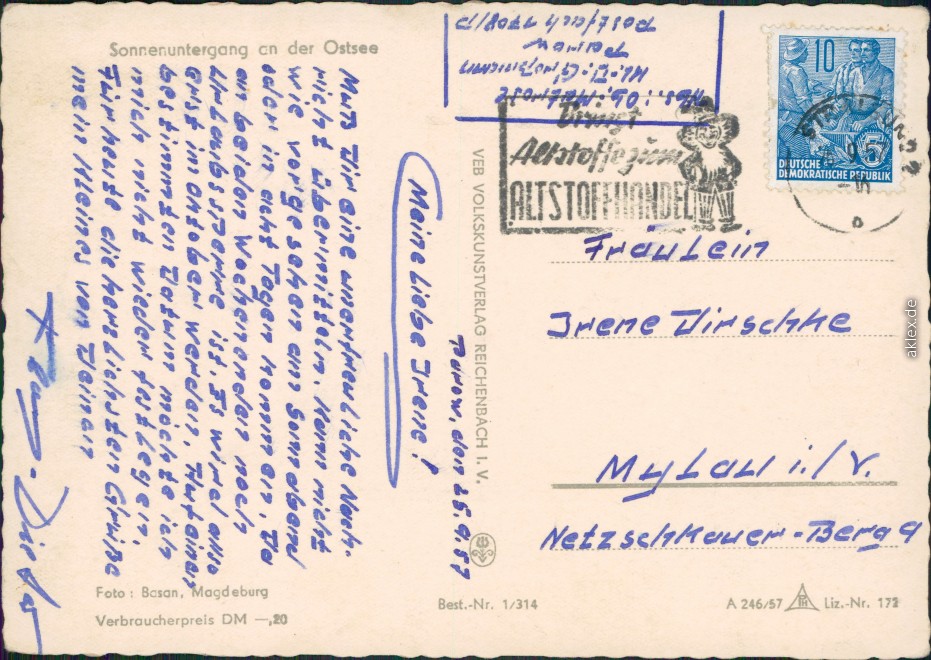 Sonnenuntergang an der Ostsee
Parow, den 25.9.57
Meine Liebe Irene!
Muss Dir eine unerfreuliche Nach-
richt übermitteln. Kann nicht
wie vorgesehen am Sonnabend
oder in acht Tagen kommen. Da
an beiden Wochenenden noch
Urlaubssperre ist. Es wird also
erst im Oktober werden. Auf einen
bestimmten Datum möchte ich
mich nicht wieder festlegen.
Für heute die herzlichsten Grüße
mein Kleines von Deinem
Dieter
Foto: Basan, Magdeburg
Verbraucherpreis DM —,20
VEB VOLKSKUNSTVERLAG REICHENBACH I. V.
Best.-Nr. 1/314
Abs.: Ob. Matrose
Parow
Postfach 7708/D
Bringt
Altstoffe zum
ALTSTOFFHANDEL
10
5
DEUTSCHE
DEMOKRATISCHE REPUBLIK
Fräulein
Irene Dirschke
Mylau i./V.
Netzschkauer-Berg 9
A 246/57
Liz.-Nr. 172
aklex.de